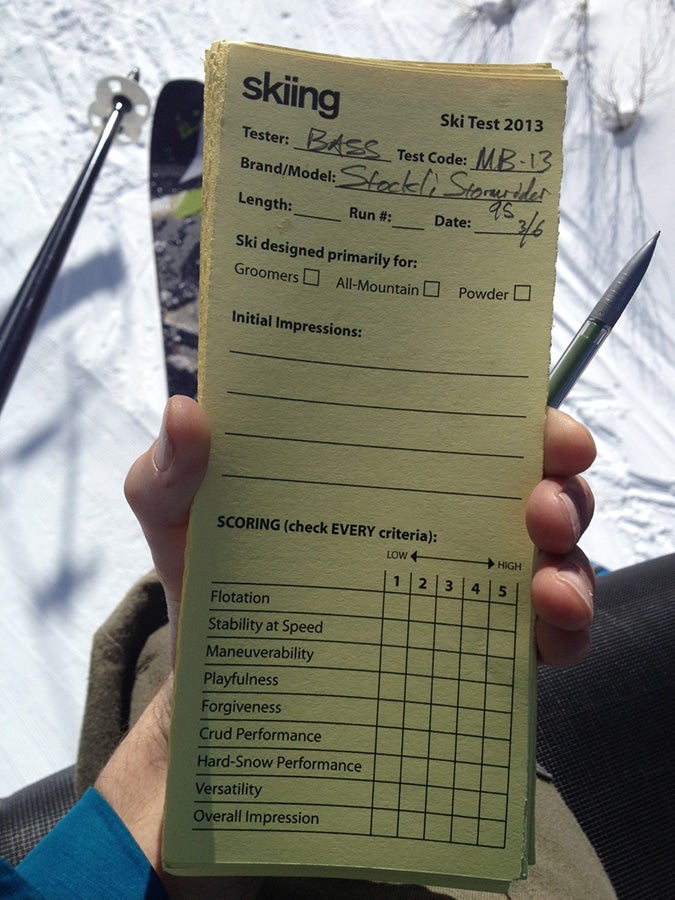 skiing
Ski Test 2013
Tester: BASS Test Code: MB-13
Brand/Model: Stockli, Stormrider
95
Length: Run #: Date: 3/6
Ski designed primarily for:
Groomers All-Mountain Powder
Initial Impressions:
SCORING (check EVERY criteria):
LOW HIGH
1 2 3 4 5
Flotation
Stability at Speed
Maneuverability
Playfulness
Forgiveness
Crud Performance
Hard-Snow Performance
Versatility
Overall Impression